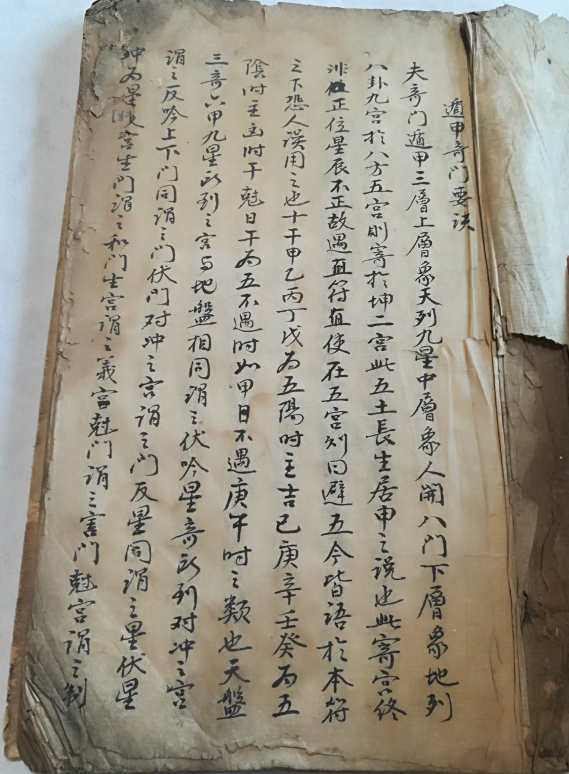 遁甲奇門要訣
夫奇門遁甲三層上層象天列九星中層象人開八門下層象地列
八卦九宮於八方五宮則寄於坤二宮此五土長生居申之說也此寄宮終
非正位星辰不正故遇直符直使在五宮則曰避五今皆語於本符
之下恐人誤用之也十干甲乙丙丁戊為五陽時主吉己庚辛壬癸為五
陰時主凶時干尅日干為五不遇時如甲日不遇庚午時之類也天盤
三奇六甲九星所列之宮与地盤相同謂之伏吟星奇所列对冲之宮
謂之反吟上下門同謂之門伏門对冲之宮謂之門反星同謂之星伏星
冲為星反宮生門謂之和門生宮謂之義宮尅門謂之害門尅宮謂之制